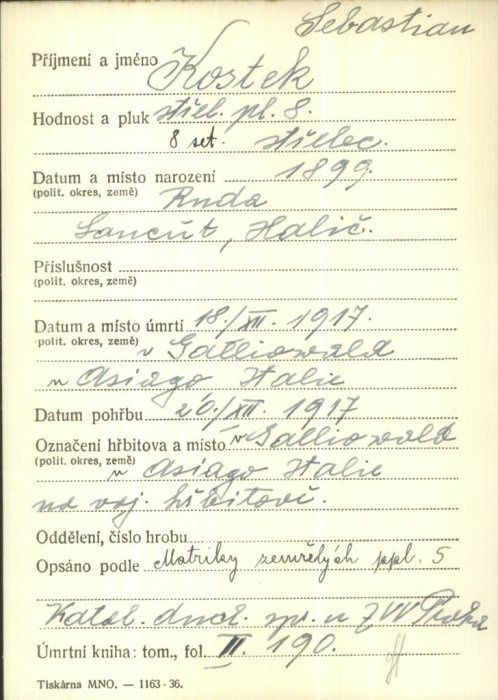 Sebastian
Příjmení a jméno Kostek
Hodnost a pluk střel. pl. 8.
8 set. střelec.
Datum a místo narození 1899.
(polit. okres, země) Ruda
Lancut, Halič.
Příslušnost
(polit. okres, země)
Datum a místo úmrtí 18./XII. 1917.
(polit. okres, země) v Galliowald
u Asiago Italie
Datum pohřbu 20./XII. 1917
Označení hřbitova a místo v Galliowald
(polit. okres, země) u Asiago Italie
na voj. hřbitově.
Oddělení, číslo hrobu
Opsáno podle Matriky zemřelých ppl. 5
Katol. duch. spr. u ZVV Praha
Úmrtní kniha: tom., fol. II. 190.
Tiskárna MNO. — 1163-36.